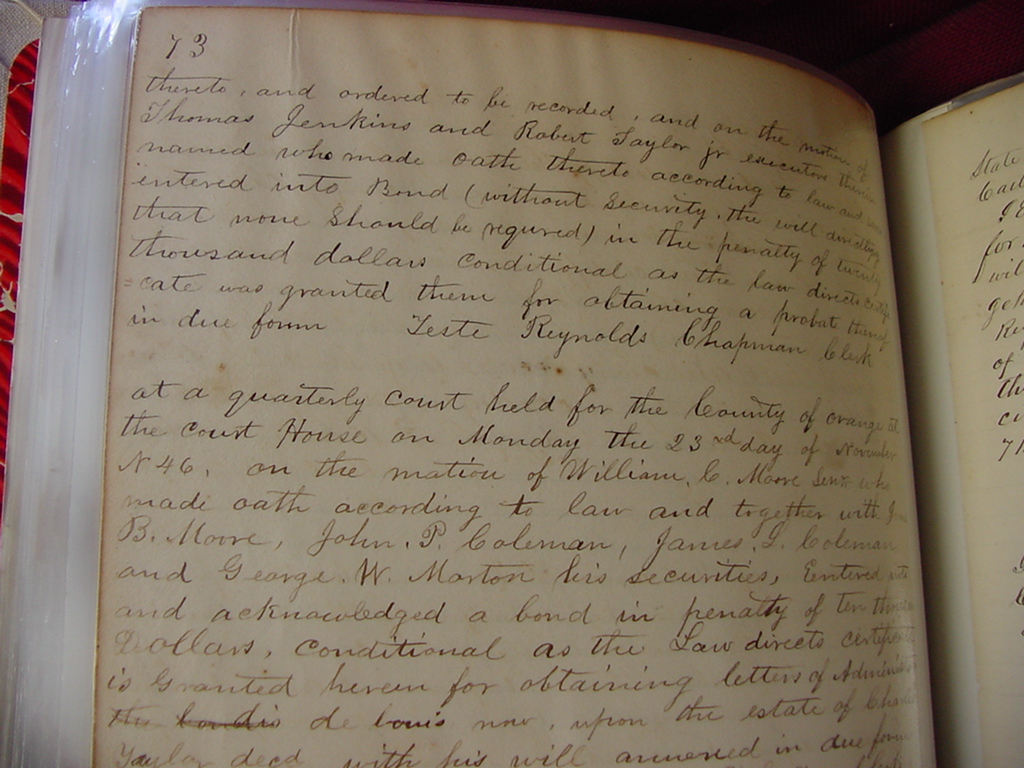 73
thereto, and ordered to be recorded, and on the motion of
Thomas Jenkins and Robert Taylor jr executors therein
named who made oath thereto according to law and
entered into Bond (without Security, the will directing
that none should be requred) in the penalty of twenty
thousand dollars conditional as the law directs certifi
=cate was granted them for obtaining a probat thereof
in due form Teste Reynolds Chapman Clerk
at a quarterly court held for the County of orange at
the court House on Monday the 23rd day of November
N46, on the motion of William, C. Moore Senr who
made oath according to law and together with
B. Moore, John, P. Coleman, James, L. Coleman
and George. W. Morton his securities, Eentered into
and acknowledged a bond in penalty of ten thousan
Dollars, conditional as the Law directs certificat
is Granted herein for obtaining letters of Administ
de bonis now, upon the estate of Charles
Taylor decd with his will annexed in due form
State
for
will
of